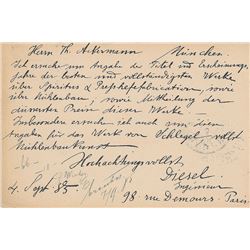 Herrn Th. Ackermann München.
Ich ersuche um Angabe der Titel und Erscheinungs-
jahre der besten und vollständigsten Werke
über Spiritus & Presshefefabrication, sowie
über Mühlenbau, sowie Mittheilung der
äussersten Preise dieser Werke.
Insbesondere ersuche ich auch um diese
Angaben für das Werk von Schlegel vollst.
Mühlenbaukunst
Hochachtungsvollst
Diesel
Ingenieur
4. Sept. 85
98. rue Demours. Paris